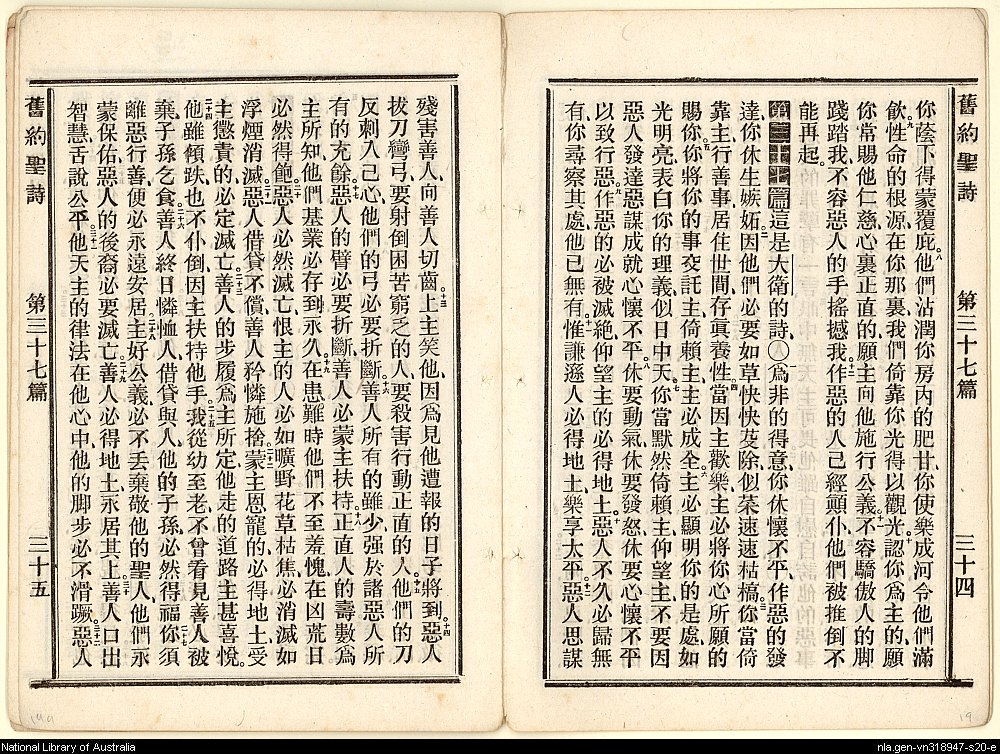 舊約聖詩 第三十七篇 三十四
你蔭下得蒙覆庇、他們沾潤你房內的肥甘、你使樂成河、令他們滿
飲、性命的根源、在你那裏、我們倚靠你光、得以觀光、認你爲主的、願
你常賜他仁慈、心裏正直的、願主向他施行公義、不容驕傲人的脚
踐踏我、不容惡人的手搖撼我、作惡的人、已經顚仆、他們被推倒、不
能再起。
第三十七篇 這是大衛的詩、〇一爲非的得意、你休懷不平、作惡的發
達、你休生嫉妬、因他們必要如草快快芟除、似菜速速枯槁、你當倚
靠主行善事、居住世間、存眞養性、當因主歡樂、主必將你心所願的
賜你、你將你的事交託主、倚賴主、主必成全、主必顯明你的是處、如
光明亮、表白你的理義、似日中天、你當默然倚賴主、仰望主、不要因
惡人發達、惡謀成就、心懷不平、休要動氣、休要發怒、休要心懷不平、
以致行惡、作惡的必被滅絕、仰望主的必得地土、惡人不久必歸無
有、你尋察其處、他已無有、惟謙遜人必得地土、樂享太平、惡人思謀
殘害善人、向善人切齒、上主笑他、因爲見他遭報的日子將到、惡人
拔刀彎弓、要射倒困苦窮乏的人、要殺害行動正直的人、他們的刀
反刺入己心、他們的弓必要折斷、善人所有的雖少、强於諸惡人所
有的充餘、惡人的臂必要折斷、善人必蒙主扶持、正直人的壽數、爲
主所知、他們基業必存到永久、在患難時、他們不至羞愧、在凶荒日、
必然得飽、惡人必然滅亡、恨主的人、必如曠野花草枯焦、必消滅如
浮煙消滅、惡人借貸不償、善人矜憐施捨、蒙主恩寵的、必得地土、受
主懲責的、必定滅亡、善人的步履、爲主所定、他走的道路、主甚喜悅、
他雖傾跌、也不仆倒、因主扶持他手、我從幼至老、不曾看見善人被
棄、子孫乞食、善人終日憐恤人、借貸與人、他的子孫必然得福、你須
離惡行善、便必永遠安居、主好公義、必不丟棄敬他的聖人、他們永
蒙保佑、惡人的後裔、必要滅亡、善人必得地土、永居其上、善人口出
智慧、舌說公平、他天主的律法、在他心中、他的脚步、必不滑蹶、惡人
舊約聖詩 第三十七篇 三十五
National Library of Australia
nla.gen-vn318947-s20-e